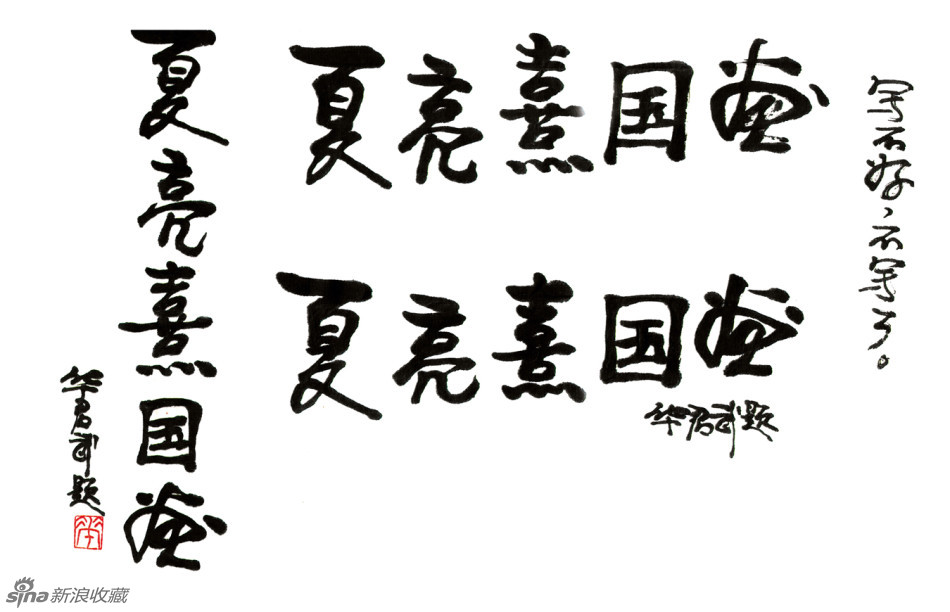 夏亮熹国画
华君武题
华
夏亮熹国画
夏亮熹国画
华君武题
写不好、不写了。
sina新浪收藏